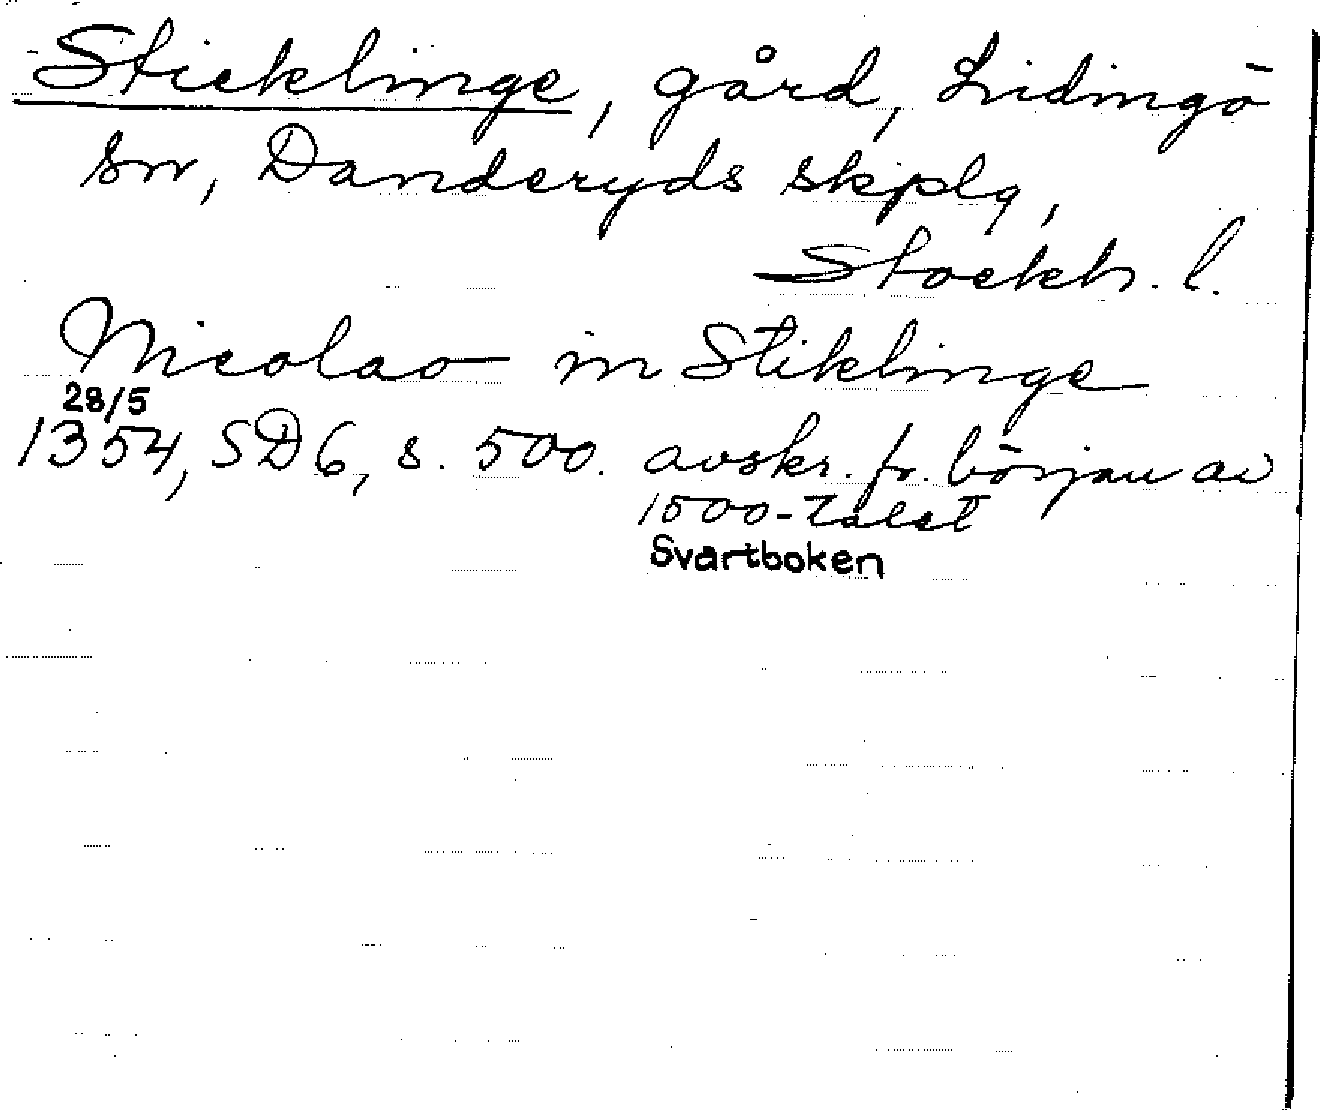 Sticklinge, gård, Lidingö
sn, Danderyds skplg,
Stockh. l.
Nicolao in Stiklinge
28/5
1354, SD 6, s. 500. avskr. fr. början av
1500-talet
Svartboken